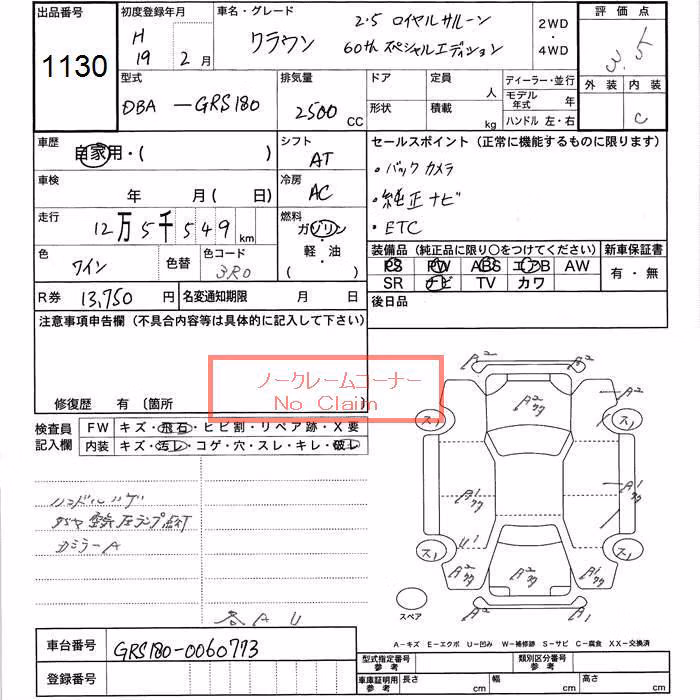 出品番号
1130
初度登録年月
H
19 2月
車名・グレード
クラウン
2.5 ロイヤルサルーン
60th スペシャルエディション
2WD
・
4WD
評価点
3.5
外装 内装
C
型式
DBA -GRS180
排気量
2500 CC
ドア
形状
定員 人
積載 kg
ディーラー・並行
モデル年式 年
ハンドル 左・右
車歴
自家用・( )
シフト
AT
車検
年 月( 日)
冷房
AC
走行
12万5千549 km
燃料
ガソリン
・
軽・油
・( )
色
ワイン
色替
色コード
3R0
R券 13,750 円
名変通知期限 月 日
セールスポイント (正常に機能するものに限ります)
・バックカメラ
・純正ナビ
・ETC
装備品 (純正品に限り○をつけてください)
PS PW ABS エアB AW
SR ナビ TV カワ
新車保証書
有・無
後日品
注意事項申告欄 (不具合内容等は具体的に記入して下さい)
ノークレームコーナー
No Claim
修復歴 有 〔箇所
検査員記入欄
FW キズ・飛石・ヒビ割・リペア跡・X要
内装 キズ・汚レ・コゲ・穴・スレ・キレ・破レ
タイヤ空気圧ランプ点灯
ミラーA
各AU
A2 A2
A2 A2
スリ スリ
A1 A1
U1
スリ スリ
A2 A2 A1
スペア
A-キズ E-エクボ U-凹み W-補修跡 S-サビ C-腐食 XX-交換済
車台番号
GRS180-0060773
登録番号
型式指定番号 参考
類別区分番号 参考
車庫証明用 参考
長さ cm
幅 cm
高さ cm